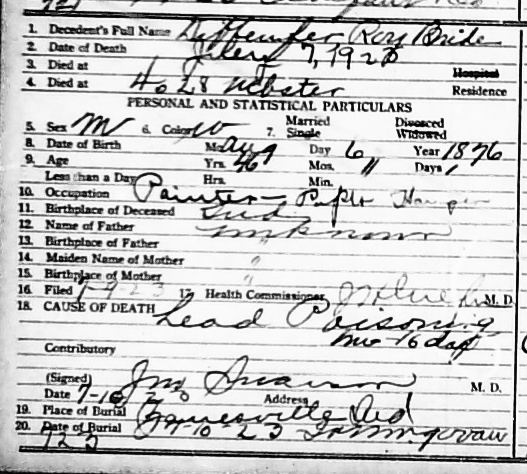 1. Decedent's Full Name Roy Bride
2. Date of Death July 7, 1923
3. Died at Hospital
4. Died at 4028 Webster Residence
PERSONAL AND STATISTICAL PARTICULARS
5. Sex M 6. Color W 7. Married Single Divorced Widowed
8. Date of Birth Mo. Aug Day 6 Year 1876
9. Age Yrs. 46 Mos. 11 Days 1
Less than a Day Hrs. Min.
10. Occupation Painter - Paper Hanger
11. Birthplace of Deceased Ind
12. Name of Father Unknown
13. Birthplace of Father "
14. Maiden Name of Mother "
15. Birthplace of Mother "
16. Filed 1923 17. Health Commissioner M. D.
18. CAUSE OF DEATH Lead Poisoning
16 days
Contributory
(Signed) M. D.
Date 7-10 23 Address
19. Place of Burial Ind
20. Date of Burial 7-10 23